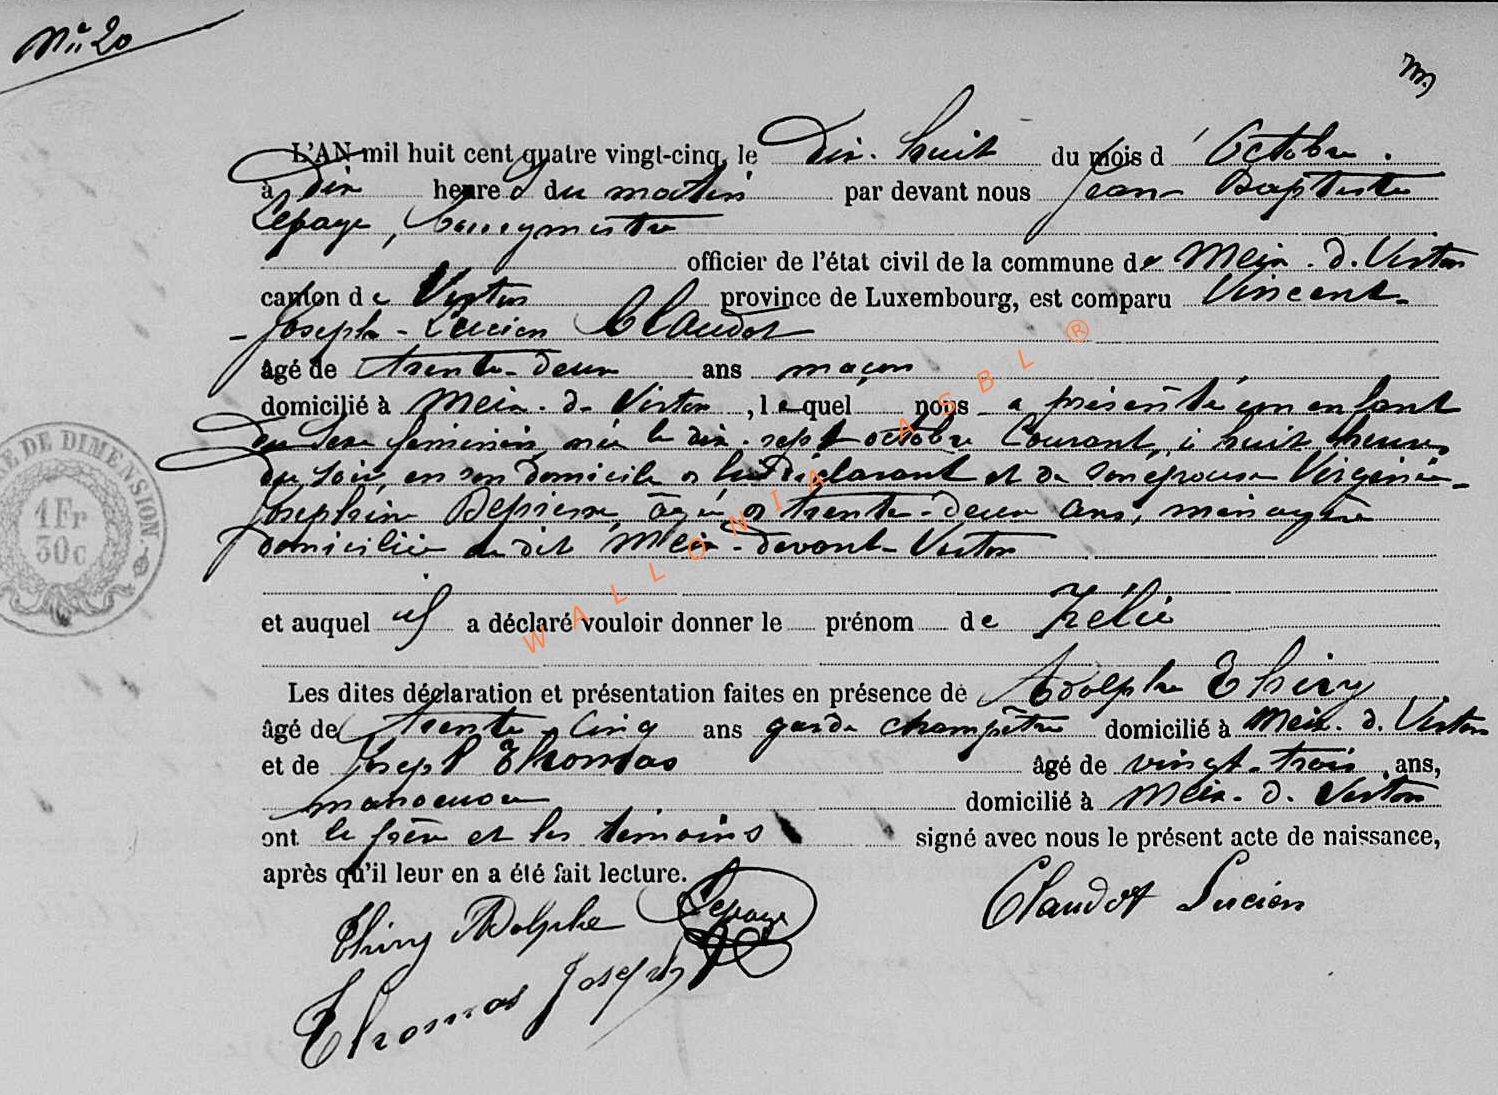 N° 20
L'AN mil huit cent quatre vingt-cinq, le Dix-huit du mois d'Octobre.
à dix heures du matin par devant nous Jean Baptiste
Lepage, bourgmestre
officier de l'état civil de la commune de Meix-d-Virton
canton de Virton province de Luxembourg, est comparu Vincent-
-Joseph-Lucien Claudot
âgé de trente-deux ans maçon
domicilié à Meix-d-Virton, lequel nous a présenté un enfant
du sexe féminin, née le dix-sept octobre Courant, à huit heures
du soir, en son domicile de lui déclarant et de son épouse Virginie-
Joséphine Depierre, âgée de trente-deux ans, ménagère
domiciliée au dit Meix-devant-Virton
et auquel il a déclaré vouloir donner le prénom de Zélie
Les dites déclaration et présentation faites en présence de Adolphe Thiry
âgé de trente-cinq ans garde champêtre domicilié à Meix-d-Virton
et de Joseph Thomas âgé de vingt-trois ans,
manoeuvre domicilié à Meix-d-Virton
ont le père et les témoins signé avec nous le présent acte de naissance,
après qu'il leur en a été fait lecture.
Thiry Adolphe Lepage Claudot Lucien
Thomas Joseph
E DE DIMENSION
1 Fr
30c
WALLONIA ASBL ®